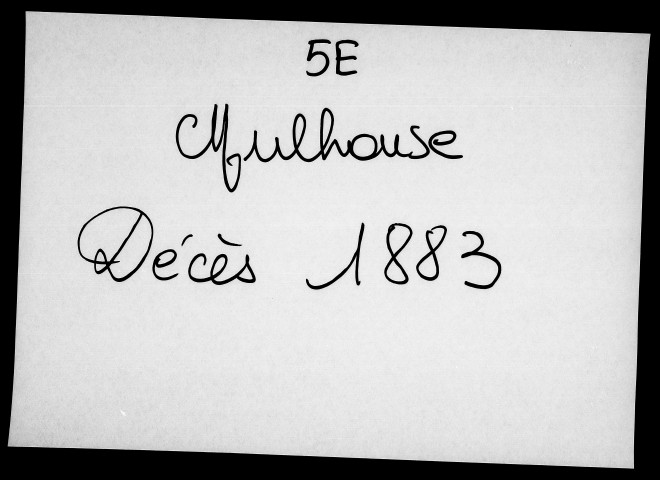 5E
Mulhouse
Décès 1883